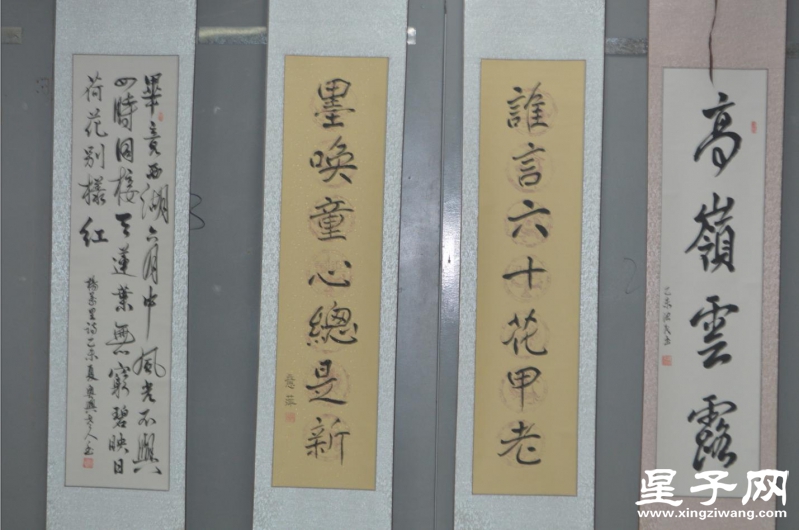 高嶺雲露
誰言六十花甲老
墨喚童心總是新
畢竟西湖六月中風光不與
四時同接天蓮葉無窮碧映日
荷花别樣紅
楊萬里詩乙未夏
星子网
www.xingziwang.com